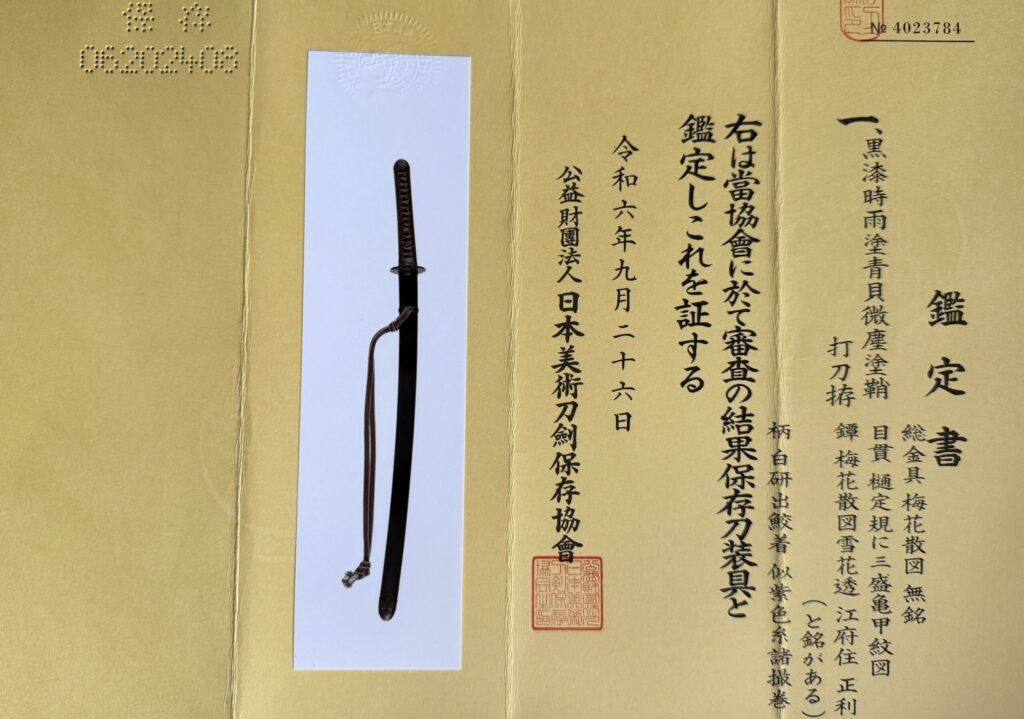 № 4023784
鑑定書
一、黒漆時雨塗青貝微塵塗鞘
打刀拵
総金具 梅花散図 無銘
目貫 樋定規に三盛亀甲紋図
鐔 梅花散図雪花透 江府住 正利
(と銘がある)
柄 白研出鮫着 似紫色糸諸撮巻
右は當協會に於て審査の結果保存刀装具と
鑑定しこれを証する
令和六年九月二十六日
公益財團法人 日本美術刀劍保存協會
保存
06202408